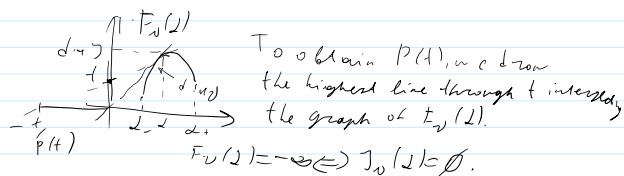 F_ν(α)
dim J
t
d im ν
α_ α α+
p(t)
To obtain P(t), we draw
the highest line through t intersecting
the graph of F_ν(α).
F_ν(α)=-∞ ⇔ J_ν(α)=∅.